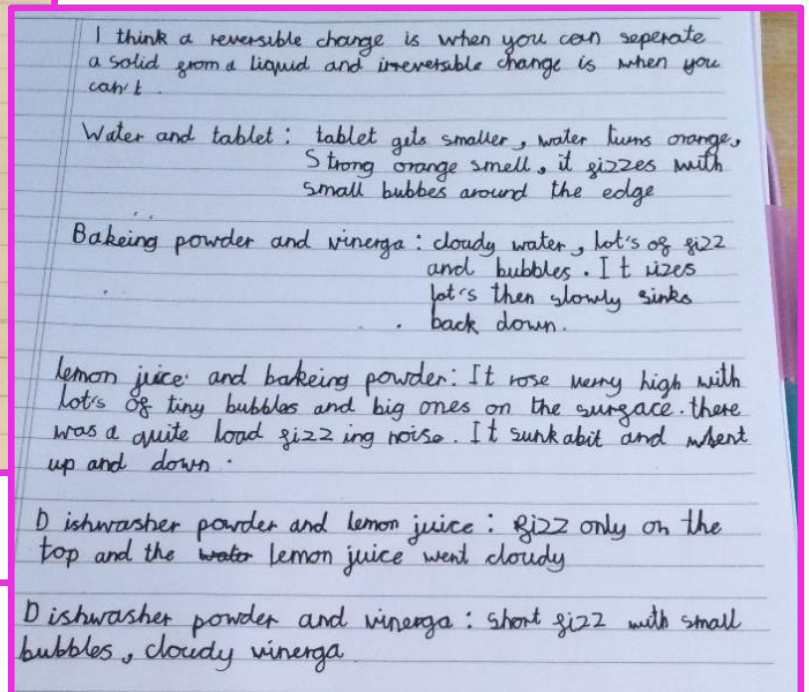 I think a reversible change is when you can seperate
a solid from a liquid and irreversable change is when you
can't.
Water and tablet : tablet gets smaller, water turns orange,
Strong orange smell, it fizzes with
small bubbes around the edge
Bakeing powder and vinerga : cloudy water, lot's of fizz
and bubbles. It rizes
lot's then slowly sinks
back down.
lemon juice and bakeing powder: It rose verry high with
lot's of tiny bubbles and big ones on the surface. there
was a quite load fizz ing noise. It sunk abit and whent
up and down.
Dishwasher powder and lemon juice : fizz only on the
top and the water lemon juice went cloudy
Dishwasher powder and vinerga : short fizz with small
bubbles, cloudy vinerga